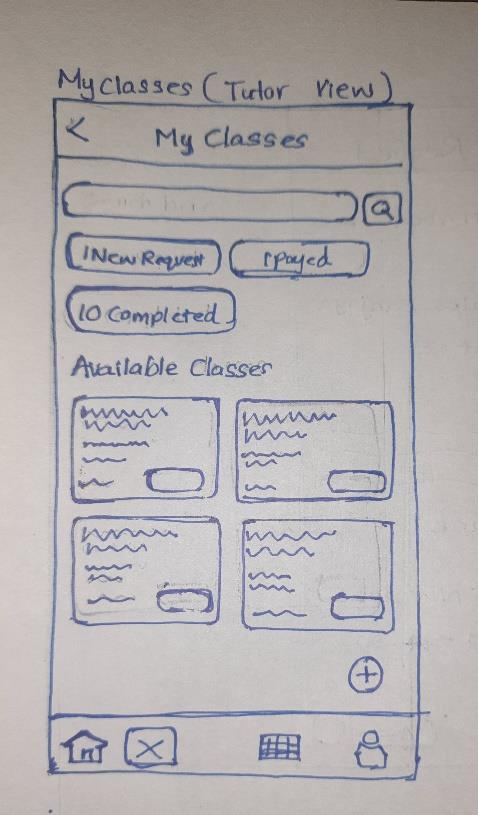 My Classes (Tutor View)
< My Classes
1 New Request 1 payed
10 Completed
Available Classes
+
X